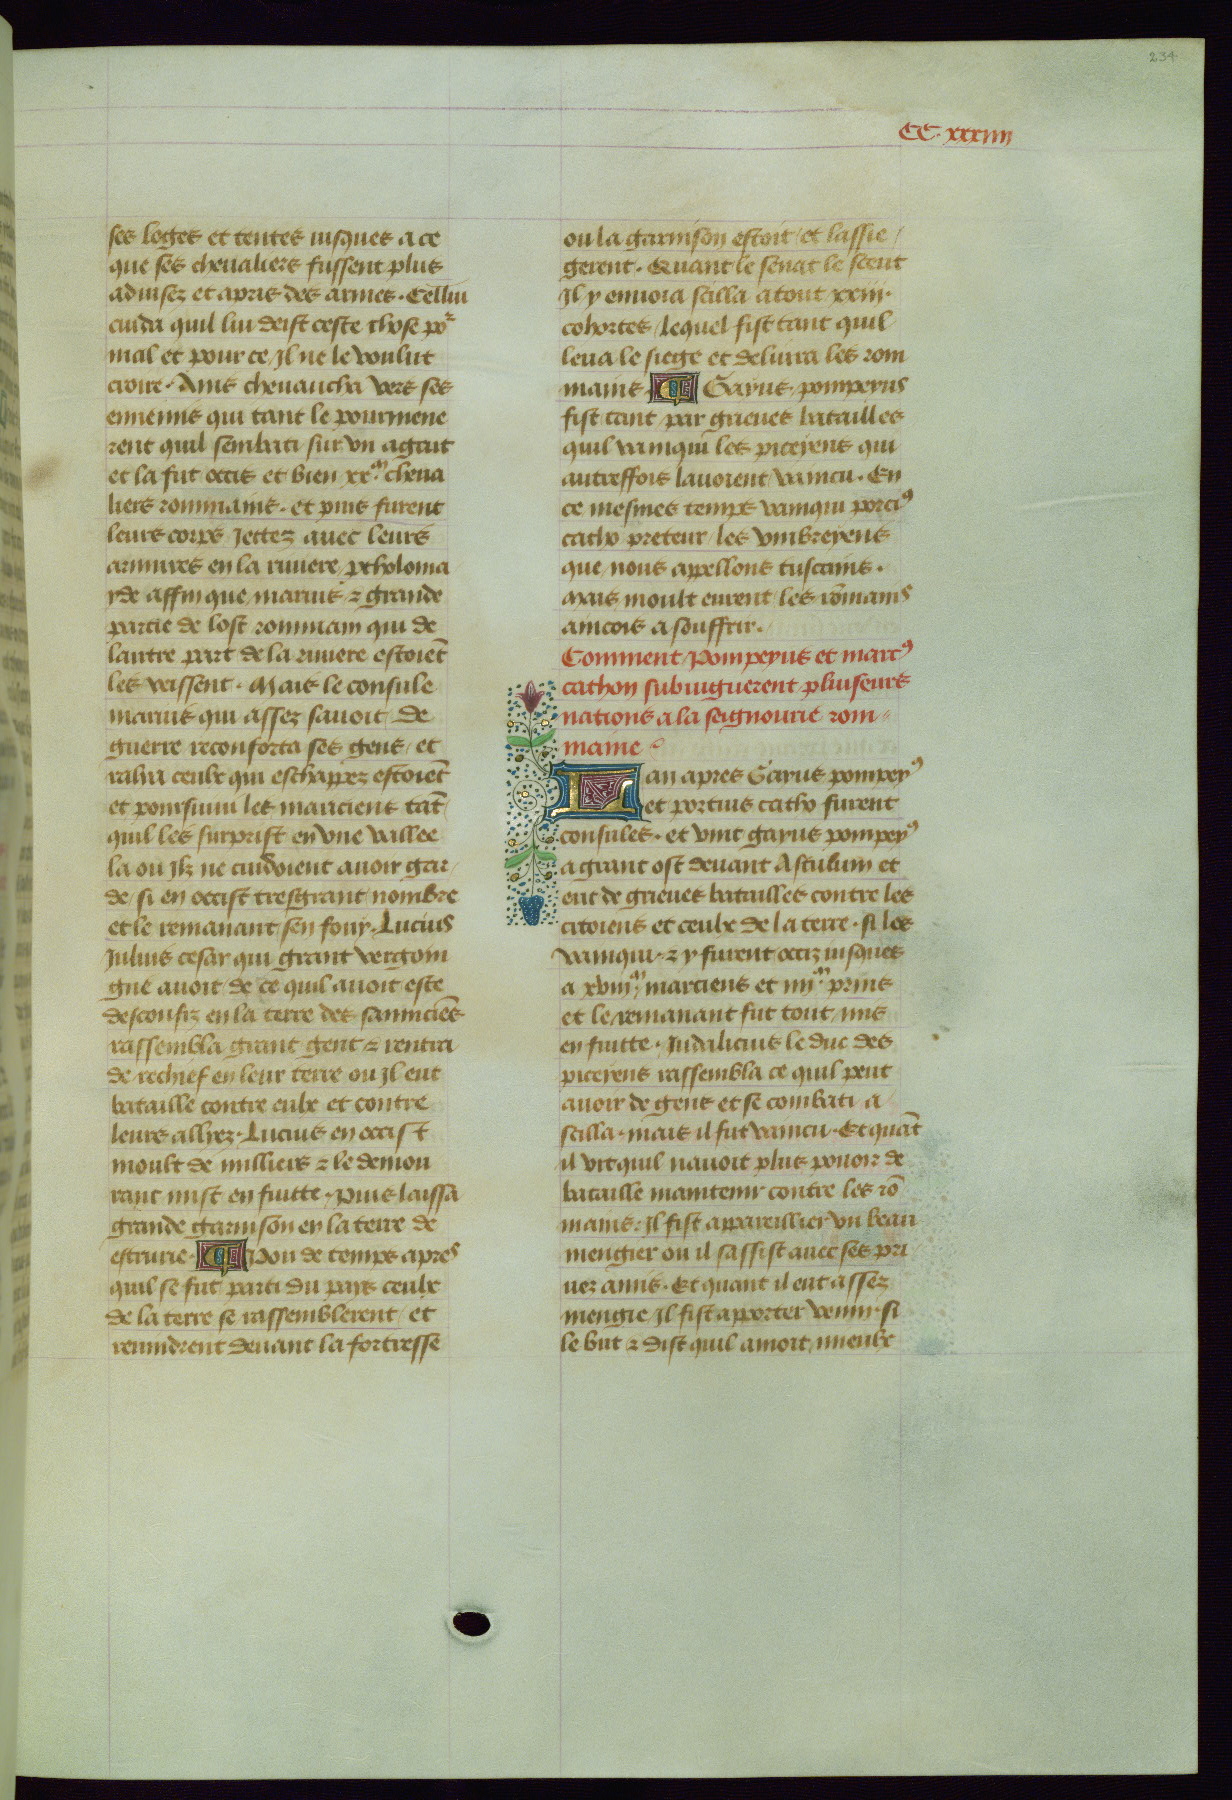 234
CC. xxxiiii
ses loges et tentes iusques a ce
que ses cheualiers fussent plus
aduisez et apris des armes. Cellui
cuida quil lui deist ceste chose por
mal et pour ce Jl ne le voulut
croire. Ains cheuaucha vers ses
ennemis qui tant le pourmene
rent quil sembati sur vn agait
et la fut occis et bien xx.m cheua
liers rommains. et puis furent
leurs corps Jettez auec leurs
armures en la riuiere ptholoma
yde affin que marius ⁊ grande
partie de lost rommain qui de
lautre part de la riuiere estoiēt
les veissent. Mais le consule
marius qui assez sauoit de
guerre reconforta ses gens / et
ralia ceulx qui eschappez estoiēt
et poursuiui les marciens tāt
quil les surprist en vne vallee
la ou Jlz ne cuidoient auoir gar /
de / si en occist tresgrant nombre
et le remanant sen fouy. Lucius
Julius cesar qui grant vergoin
gne auoit de ce quil auoit este
desconfiz en la terre des samniciēs
rassembla grant gent ⁊ rentra
de rechief en leur terre ou Jl eut
bataille contre eulx et contre
leurs allyez. Lucius en occist
moult de milliers ⁊ le demou
rant mist en fuitte. Puis laissa
grande garnison en la terre de
estrurie. ¶ Pou de temps apres
quil se fut parti du pays ceulx
de la terre se rassemblerent / et
reuindrent deuant la fortresse
ou la garnison estoit / et lassie /
gerent. Quant le senat le sceut
Jl y enuoia scilla a tout xxiii.
cohortes / lequel fist tant quil
leua le siege et deliura les rom
mains. ¶ Gayus pompeyus
fist tant par grieues batailles
quil vainqui les piceyens qui
autreffois lauoient vaincu. En
ce mesmes temps vainqui porciꝰ
catho preteur les vmbreyens
que nous appellons tuscains.
Mais moult eurent les rōmains
aincois a souffrir.
Comment Pompeyus et marcꝰ
cathon subiuguerent pluiseurs
nations a la seignourie rom
maine
Lan apres Gayus pompeyꝰ
et portius catho furent
consules. et vint gayus pompeyꝰ
a grant ost deuant Asculum et
eut de grieues batailles contre les
citoiens et ceulx de la terre. si les
vainqui. ⁊ y furent occiz iusques
a xviii.m marciens et iii.m prins
et le remanant fut tout mis
en fuitte. Judalicius le duc des
piceyens rassembla ce quil peut
auoir de gens et se combati a
scilla. mais il fut vaincu. Et quāt
il vit quil nauoit plus pouoir de
bataille maintenir contre les rō
mains. Jl fist appareillier vn beau
mengier ou il sassist auec ses pri
uez amis. Et quant il eut assez
mengie Jl fist apporter venin. si
le but ⁊ dist quil amoit mieulx